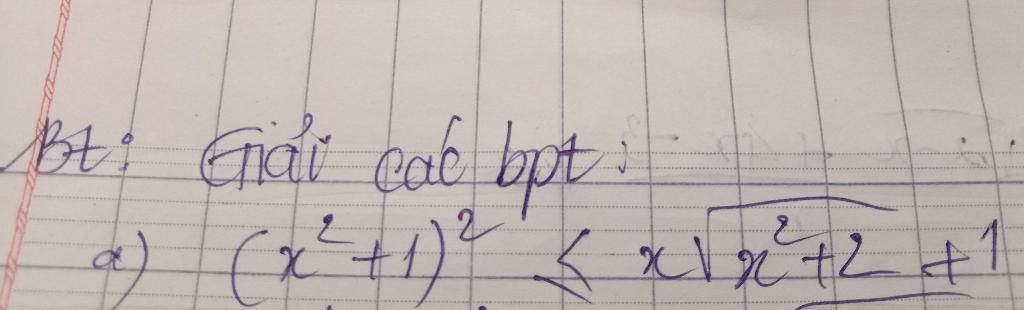 Bt: Giải các bpt:
a) (x²+1)² < x√(x²+2) + 1